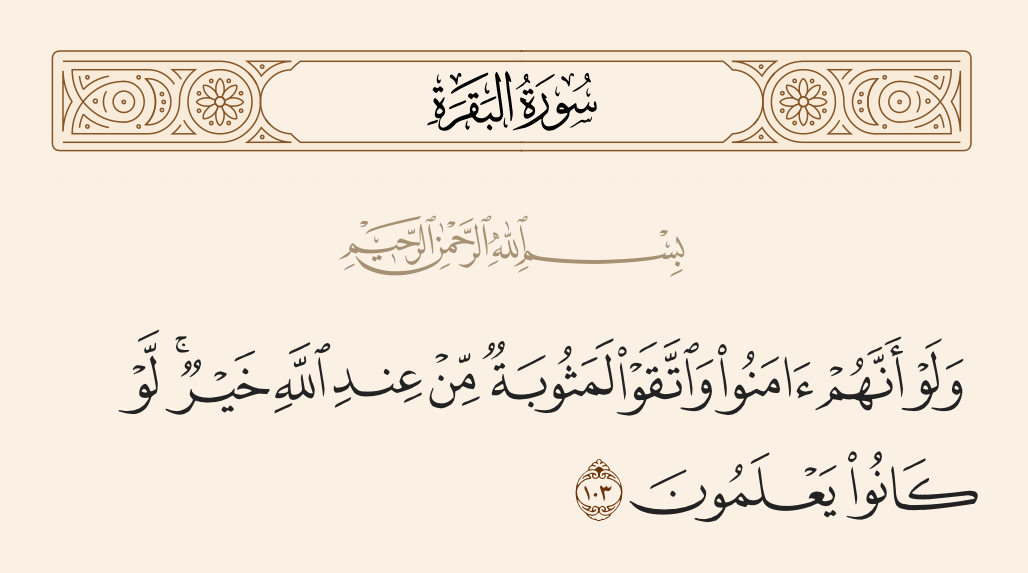 سُورَةُ البَقَرَةِ
بِسْمِ ٱللَّهِ ٱلرَّحْمَٰنِ ٱلرَّحِيمِ
وَلَوْ أَنَّهُمْ ءَامَنُوا۟ وَٱتَّقَوْا۟ لَمَثُوبَةٌ مِّنْ عِندِ ٱللَّهِ خَيْرٌ ۚ لَّوْ
كَانُوا۟ يَعْلَمُونَ ١٠٣